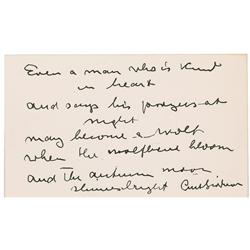 Even a man who is kind
in heart
and says his prayers at
night
may become a wolf
when the wolfbane bloom
and the autumn moon
shines bright Curt Siodmak